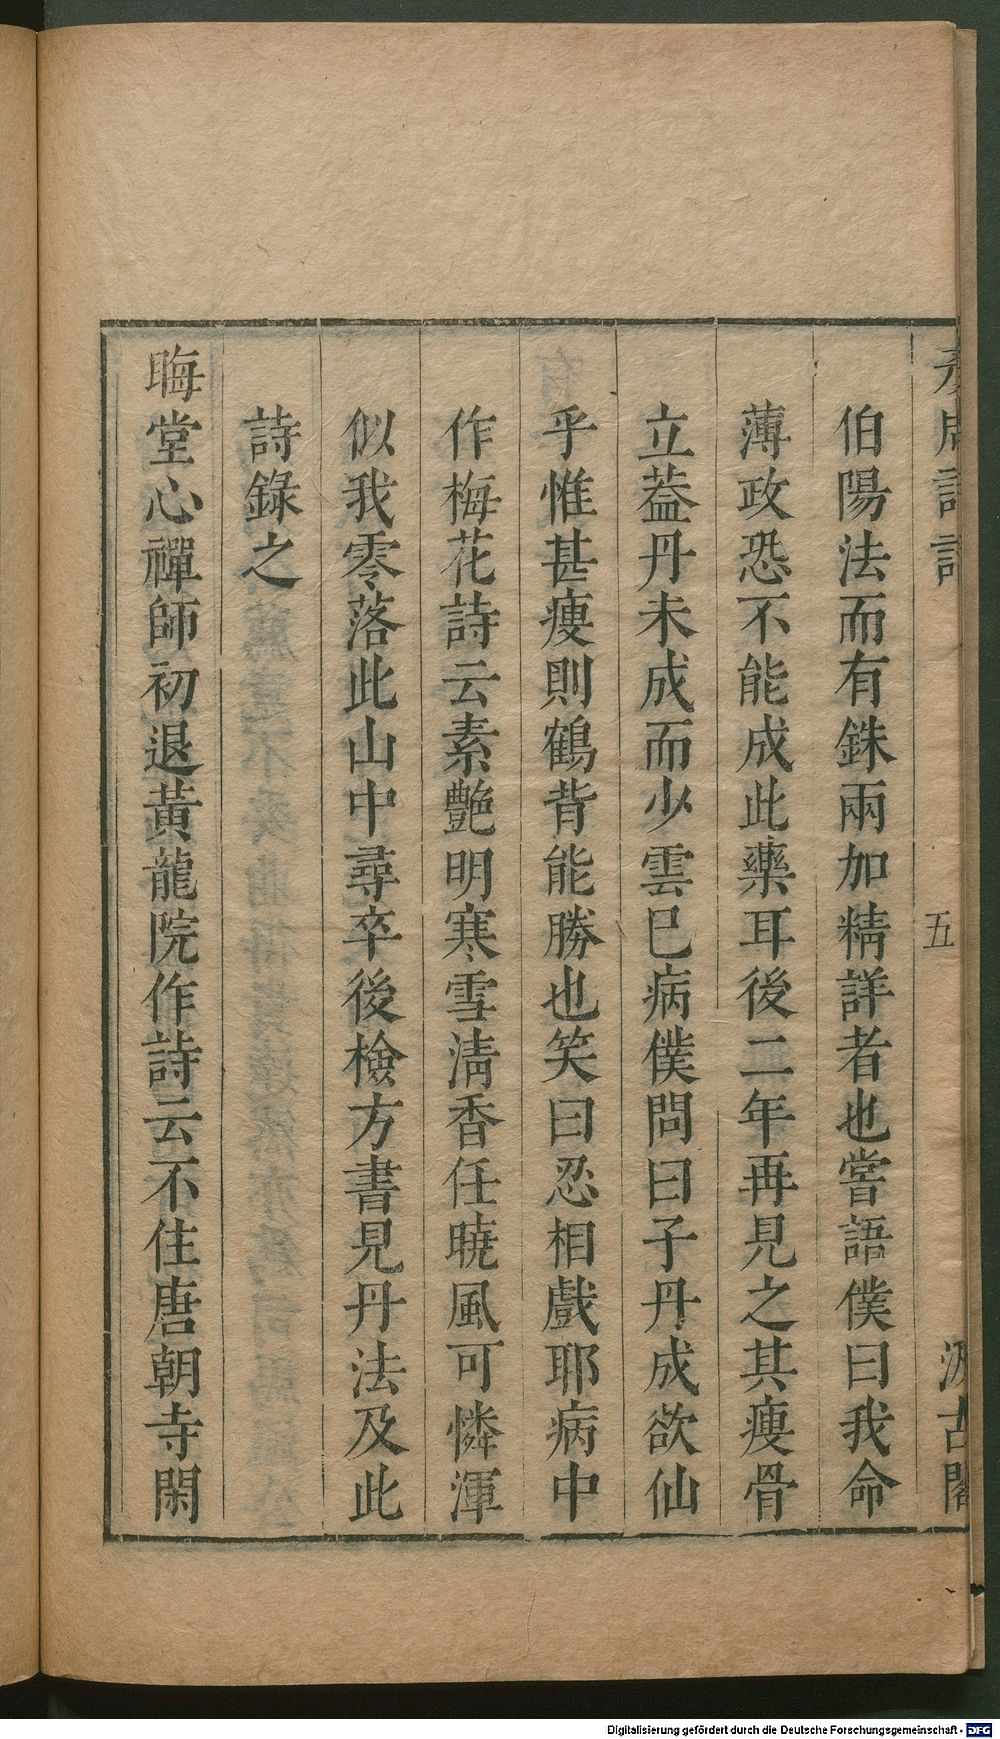 彥周詩話
五
汲古閣
伯陽法而有銖兩加精詳者也嘗語僕曰我命
薄政恐不能成此藥耳後二年再見之其瘦骨
立葢丹未成而少雲已病僕問曰子丹成欲仙
乎惟甚瘦則鶴背能勝也笑曰忍相戲耶病中
作梅花詩云素艶明寒雪淸香任曉風可憐渾
似我零落此山中尋卒後檢方書見丹法及此
詩錄之
晦堂心禪師初退黃龍院作詩云不住唐朝寺閑
Digitalisierung gefördert durch die Deutsche Forschungsgemeinschaft - DFG